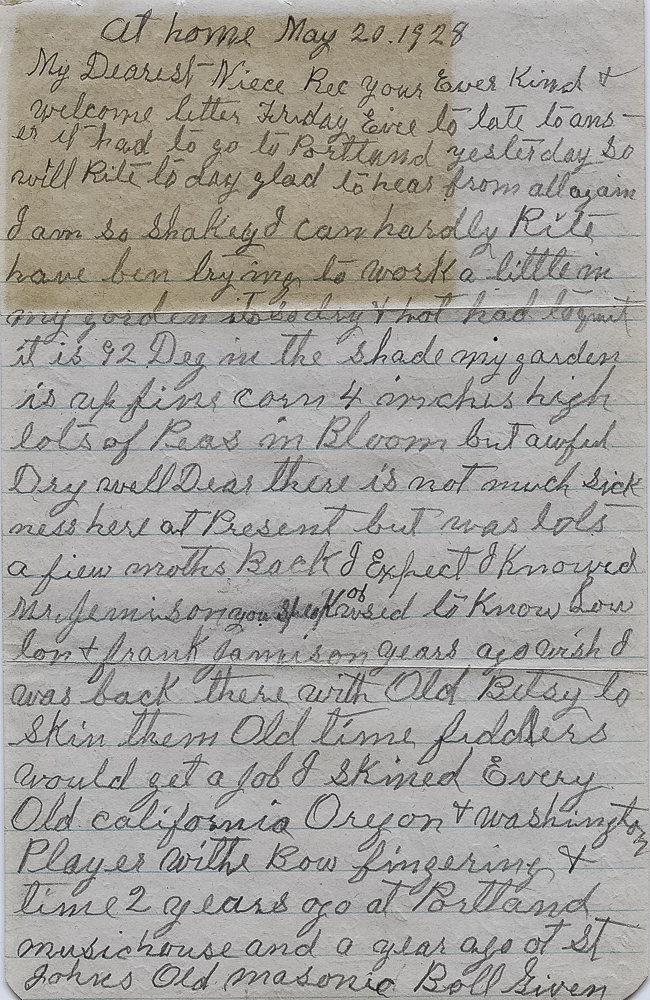 At home May 20. 1928
My Dearest Niece Rec your Ever Kind &
welcome letter Friday Evee to late to ans-
er if had to go to Portland yesterday So
will Rite to day glad to hear from all again
I am so shakey I can hardly Rite
have ben trying to work a little in
my gorden its is dry & hot had to quit
it is 92 Deg in the shade my garden
is up fine corn 4 inches high
lots of Peas in Bloom but awful
Dry well Dear there is not much Sick
ness here at Present but was lots
a fiew moths Back I Expect I Knowed
Mr. Jemison you speak of used to Know Low
lon & frank Jamison years ago wish I
was back there with Old Betsy to
Skin them Old time fiddlers
would get a Job I Skined Every
Old california Oregon & washington
Player withe Bow fingering &
time 2 years ago at Portland
music house and a year ago at St
Johns Old masonic Boll Given